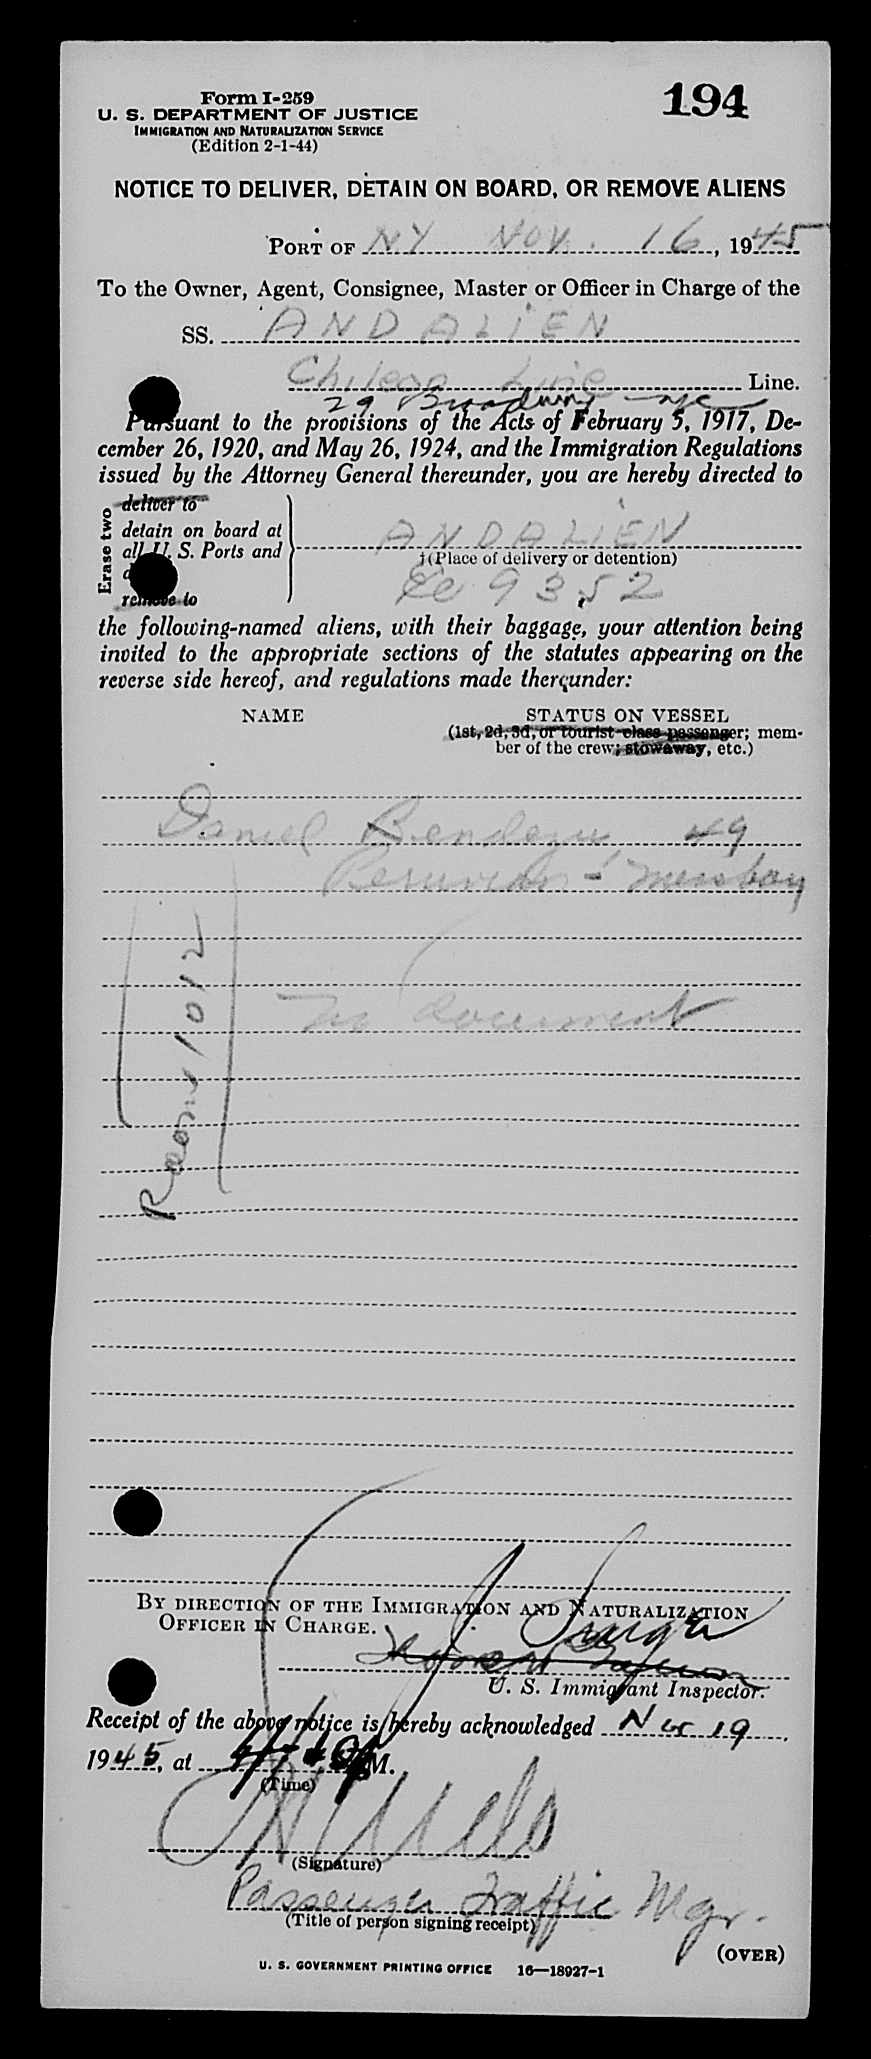 Form I-259
194
U. S. DEPARTMENT OF JUSTICE
IMMIGRATION AND NATURALIZATION SERVICE
(Edition 2-1-44)
NOTICE TO DELIVER, DETAIN ON BOARD, OR REMOVE ALIENS
PORT OF NY Nov. 16, 1945
To the Owner, Agent, Consignee, Master or Officer in Charge of the
SS. ANDALIEN
Chilean Line Line.
29 Broadway NYC
Pursuant to the provisions of the Acts of February 5, 1917, De-
cember 26, 1920, and May 26, 1924, and the Immigration Regulations
issued by the Attorney General thereunder, you are hereby directed to
Erase two
deliver to
detain on board at
all U. S. Ports and
remove to
ANDALIEN
†(Place of delivery or detention)
9352
the following-named aliens, with their baggage, your attention being
invited to the appropriate sections of the statutes appearing on the
reverse side hereof, and regulations made thereunder:
NAME STATUS ON VESSEL
(1st, 2d, 3d, or tourist class passenger; mem-
ber of the crew; stowaway, etc.)
Daniel Bendezu 49
Peruvian - Messboy
No document
Room 1012
BY DIRECTION OF THE IMMIGRATION AND NATURALIZATION
OFFICER IN CHARGE.
U. S. Immigrant Inspector.
Receipt of the above notice is hereby acknowledged Nov 19,
1945, at M.
(Time)
(Signature)
Passenger Traffic Mgr.
(Title of person signing receipt)
(OVER)
U. S. GOVERNMENT PRINTING OFFICE 16—18927-1